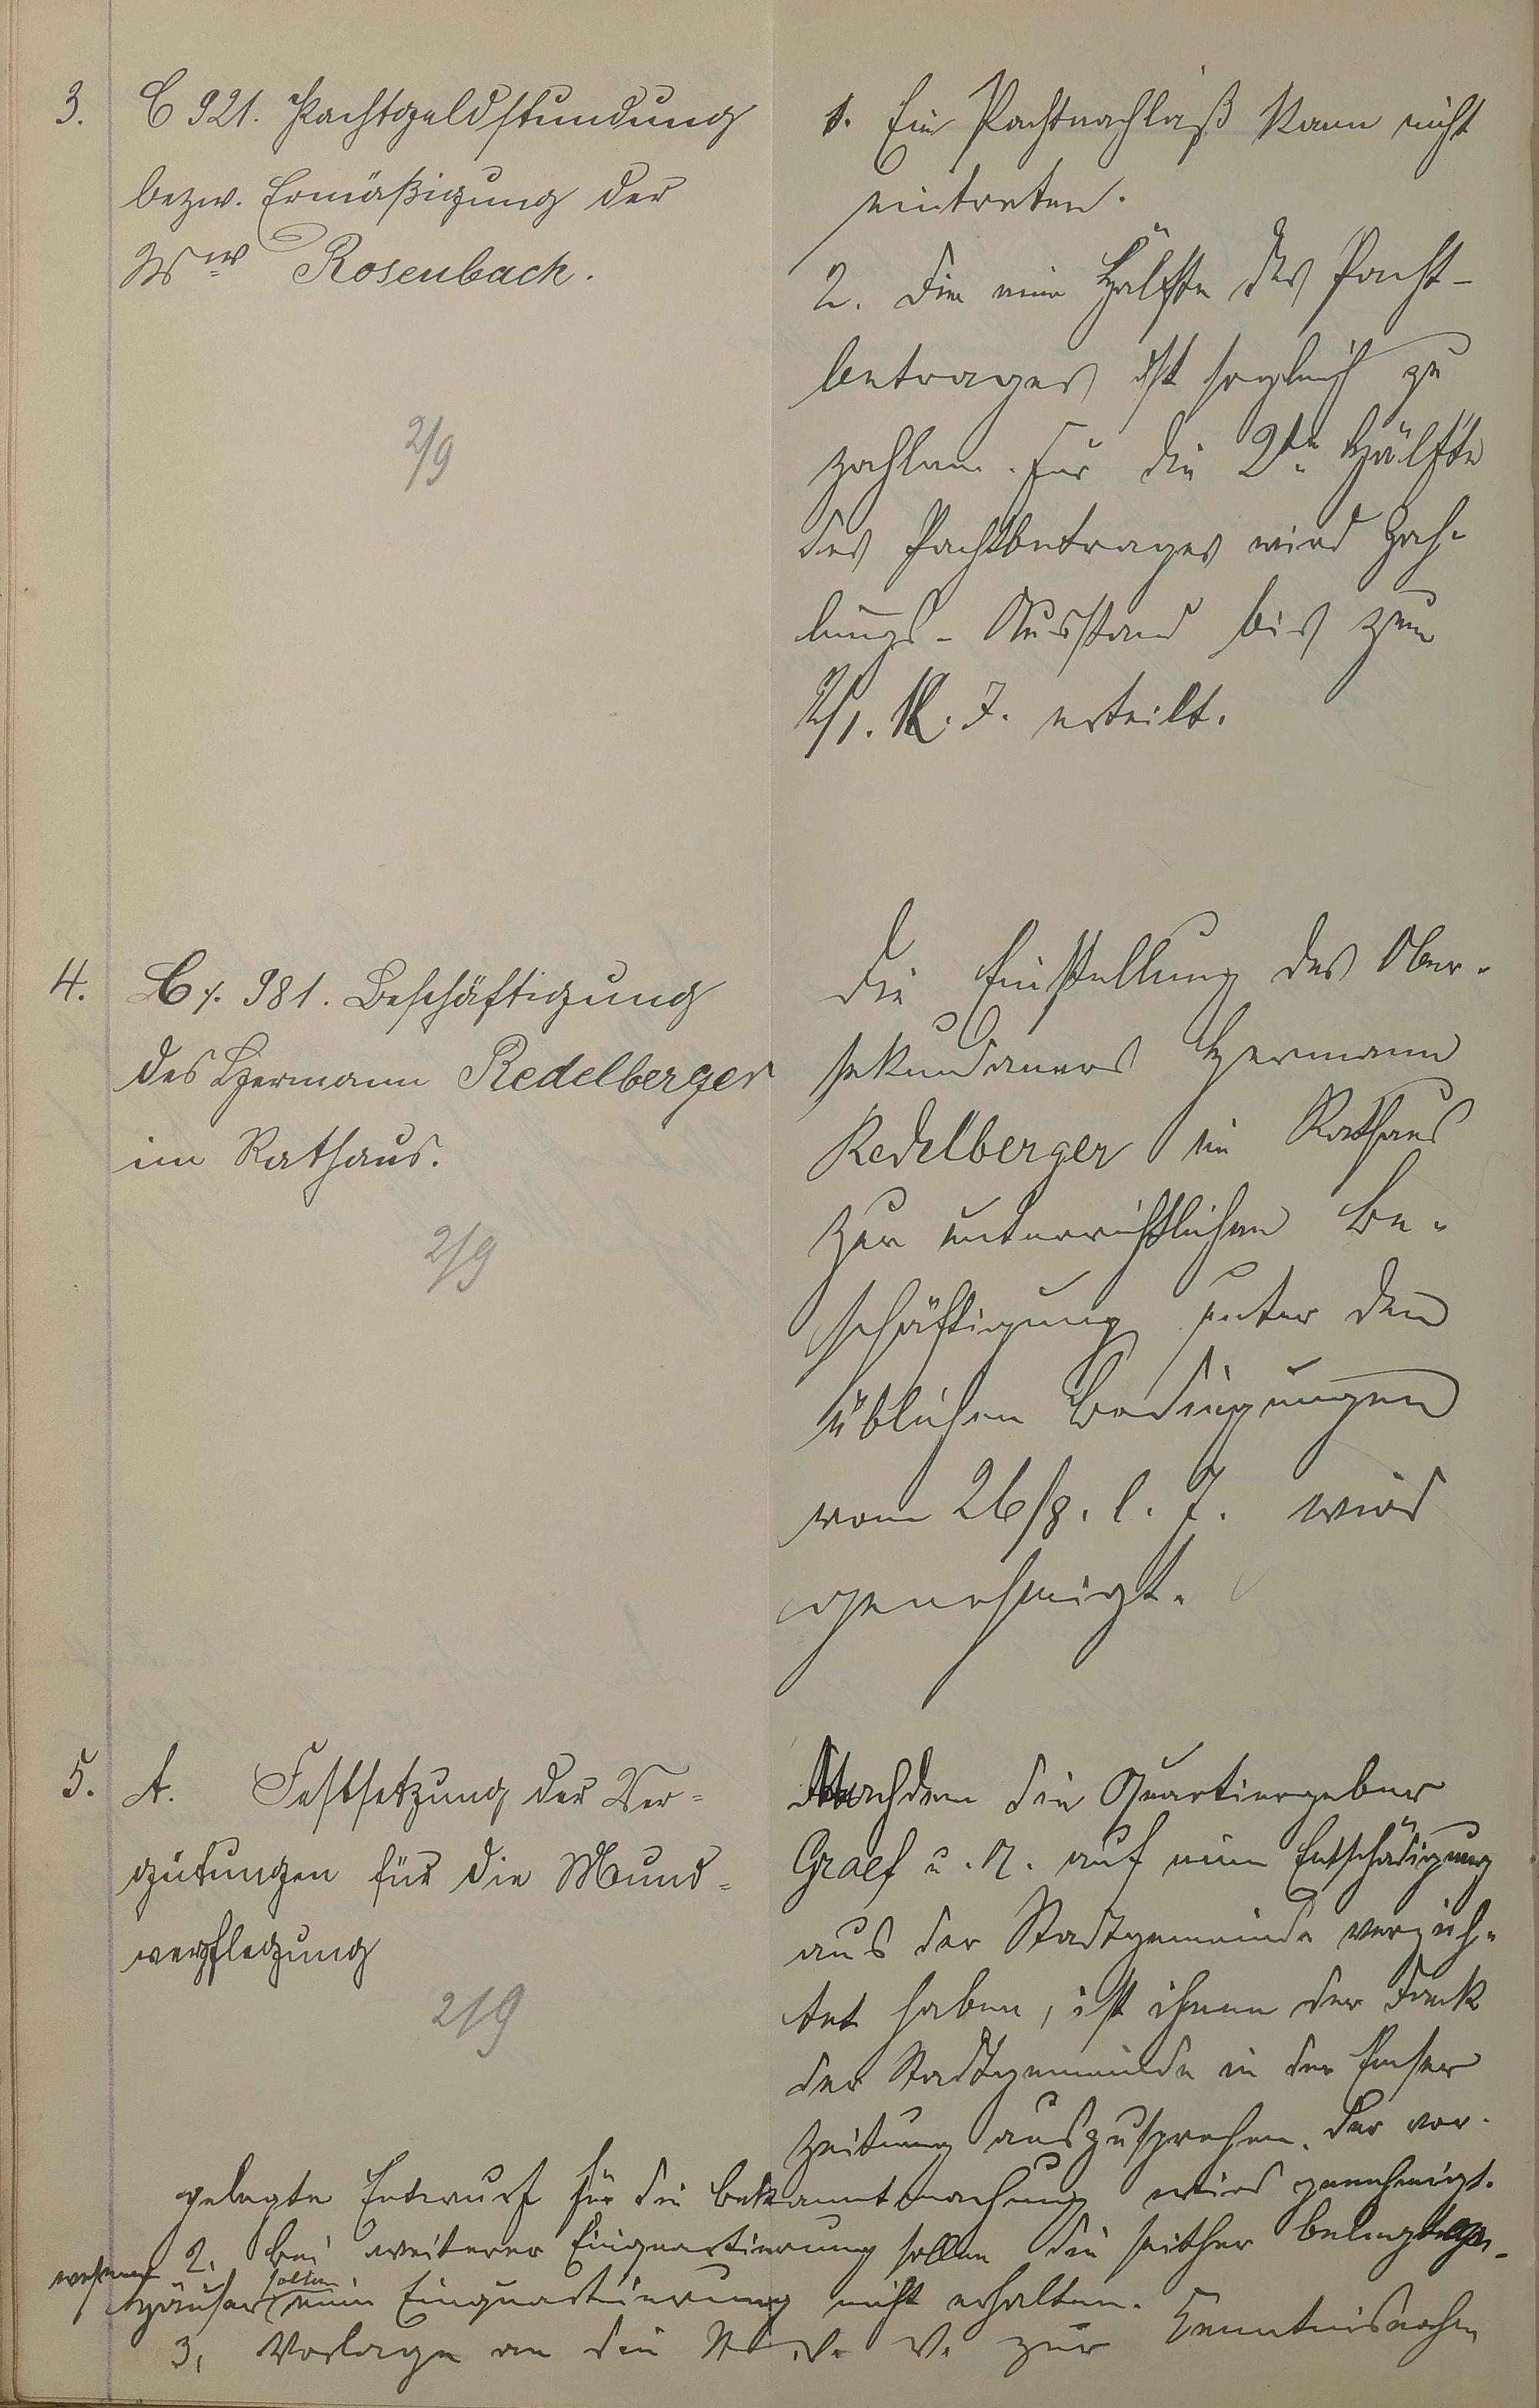 3. C 921. Pachtgeldstundung
bezw. Ermäßigung der
Wwe Rosenbach.
2/9
1. Ein Pachtnachlaß kann nicht
eintreten.
2. Die eine Hälfte des Pacht-
betrages ist sogleich zu
zahlen. Für die 2te Hälfte
des Pachtbetrages wird Zah-
lungs-Ausstand bis zum
1. J. erteilt.
4. C 981. Beschäftigung
des Hermann Redelberger
im Rathaus.
2/9
Die Einstellung des Ober-
sekundaners Hermann
Redelberger im Rathaus
zur unterrichtlichen Be-
schäftigung unter den
üblichen Bedingungen
vom 26/8. l. J. wird
genehmigt.
5. A. Festsetzung der Ver-
gütungen für die Mund-
verpflegung
2/9
Nachdem die Quartiergeber
Graef u. A. auf eine Entschädigung
aus der Stadtgemeinde verzich-
tet haben, ist ihnen der Dank
der Stadtgemeinde in der Emser
Zeitung auszusprechen. Der vor-
gelegte Entwurf für die Bekanntmachung wird genehmigt.
2. Bei weiterer Einquartierung sollen die seither belegt ge-
wesenen Häuser eine Einquartierung nicht erhalten.
3, Vorlage an die V. zur Kenntnisnahme